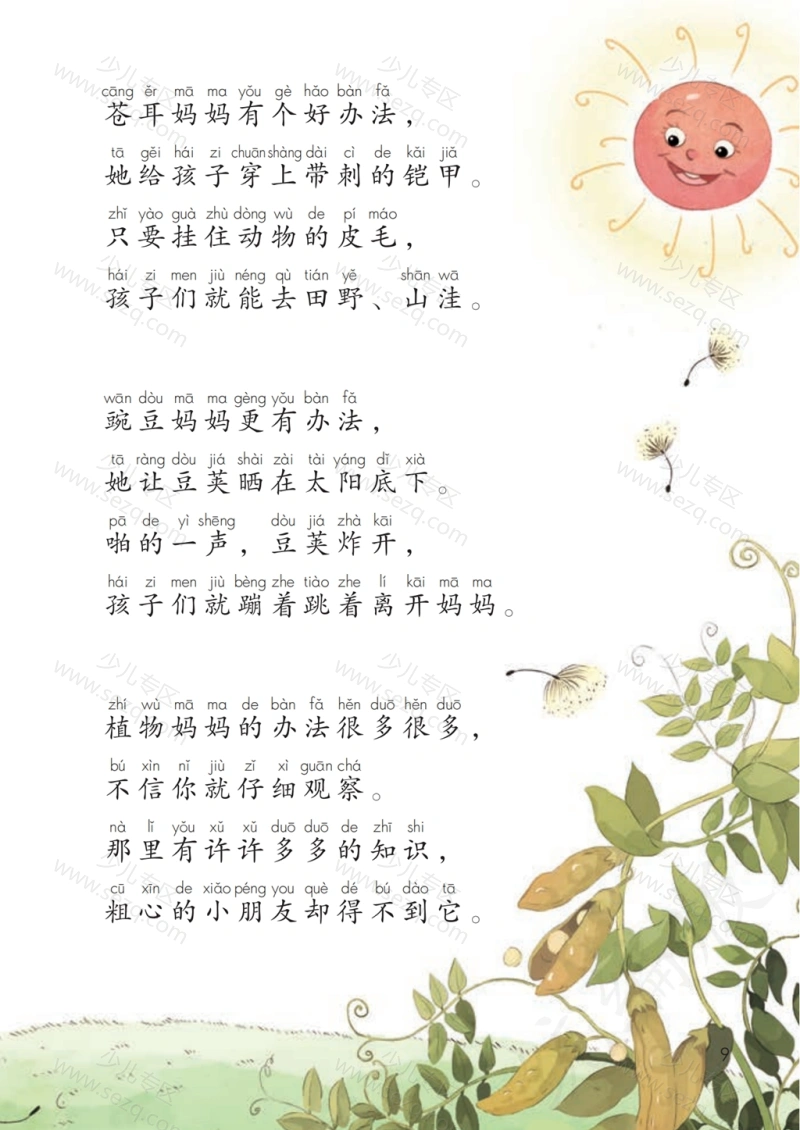 cāng ěr mā ma yǒu gè hǎo bàn fǎ
苍耳妈妈有个好办法，
tā gěi hái zi chuān shàng dài cì de kǎi jiǎ
她给孩子穿上带刺的铠甲。
zhǐ yào guà zhù dòng wù de pí máo
只要挂住动物的皮毛，
hái zi men jiù néng qù tián yě shān wā
孩子们就能去田野、山洼。
wān dòu mā ma gèng yǒu bàn fǎ
豌豆妈妈更有办法，
tā ràng dòu jiá shài zài tài yáng dǐ xià
她让豆荚晒在太阳底下。
pā de yì shēng dòu jiá zhà kāi
啪的一声，豆荚炸开，
hái zi men jiù bèng zhe tiào zhe lí kāi mā ma
孩子们就蹦着跳着离开妈妈。
zhí wù mā ma de bàn fǎ hěn duō hěn duō
植物妈妈的办法很多很多，
bú xìn nǐ jiù zǐ xì guān chá
不信你就仔细观察。
nà lǐ yǒu xǔ xǔ duō duō de zhī shi
那里有许许多多的知识，
cū xīn de xiǎo péng you què dé bú dào tā
粗心的小朋友却得不到它。
9
少儿专区
www.sezq.com